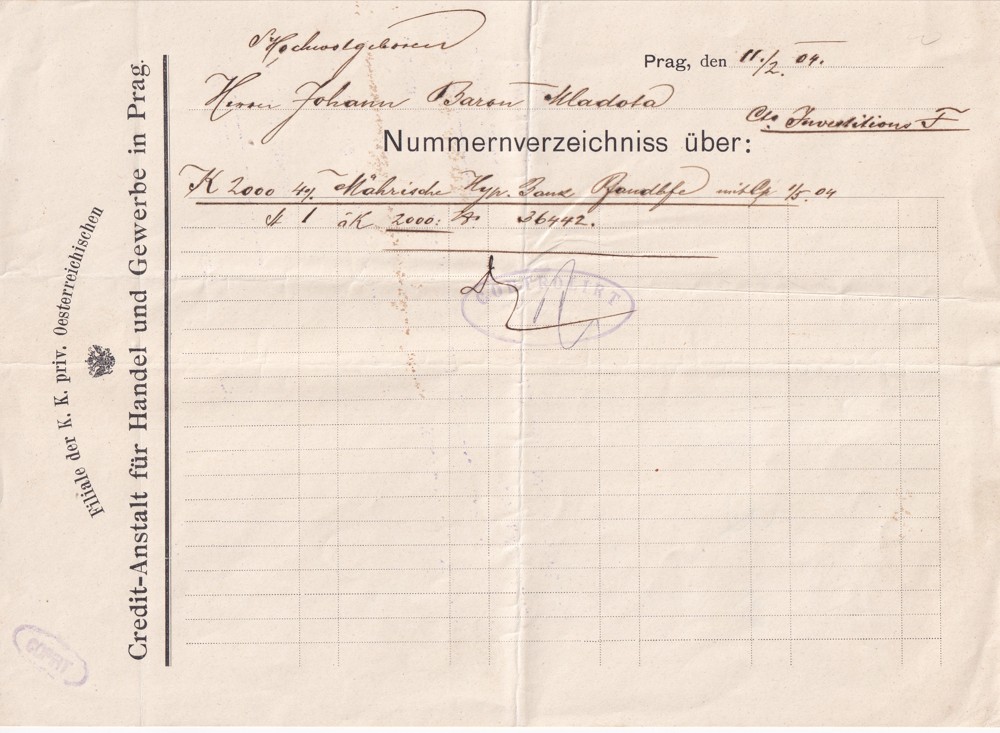 Hochwolgeboren
Prag, den 11./2. 04.
Herrn Johann Baron Mladota
Cto Investitions F
Nummernverzeichniss über:
K 2000 4% Mährische Hyp. Bank Pfandbfe mit Cp 1/5. 04
1 àK 2000: № 26442.
CONTROLIRT
Filiale der K. K. priv. Oesterreichischen
Credit-Anstalt für Handel und Gewerbe in Prag.
COPIRT